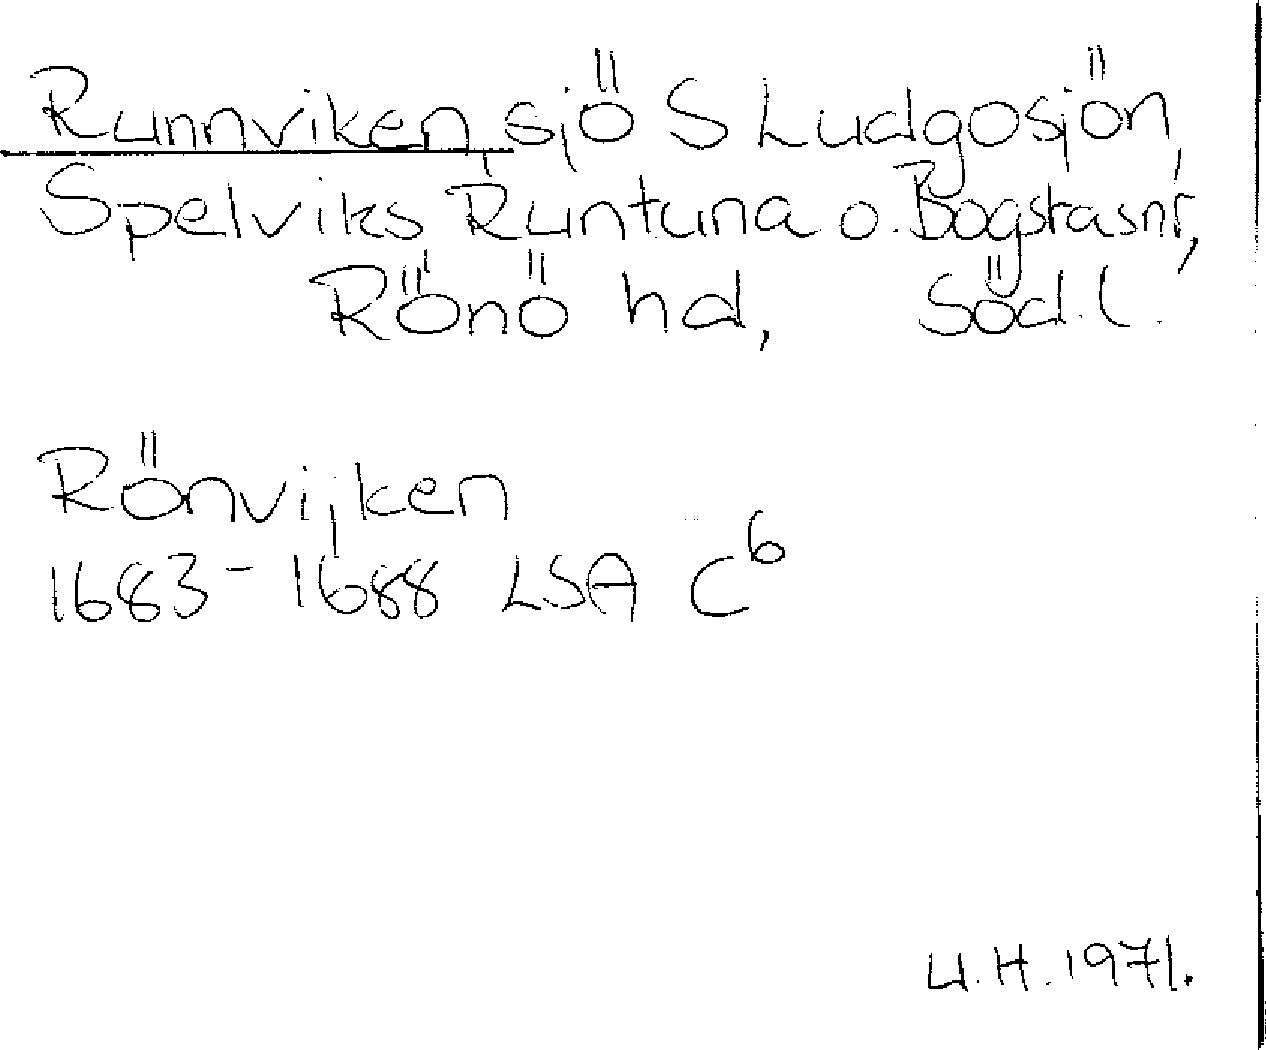 Runnviken, sjö S Ludgosjön,
Spelviks, Runtuna o. Bogstasnr,
Rönö hd, Söd.l.
Rönvijken
1683-1688 LSA C6
U.H. 1971.